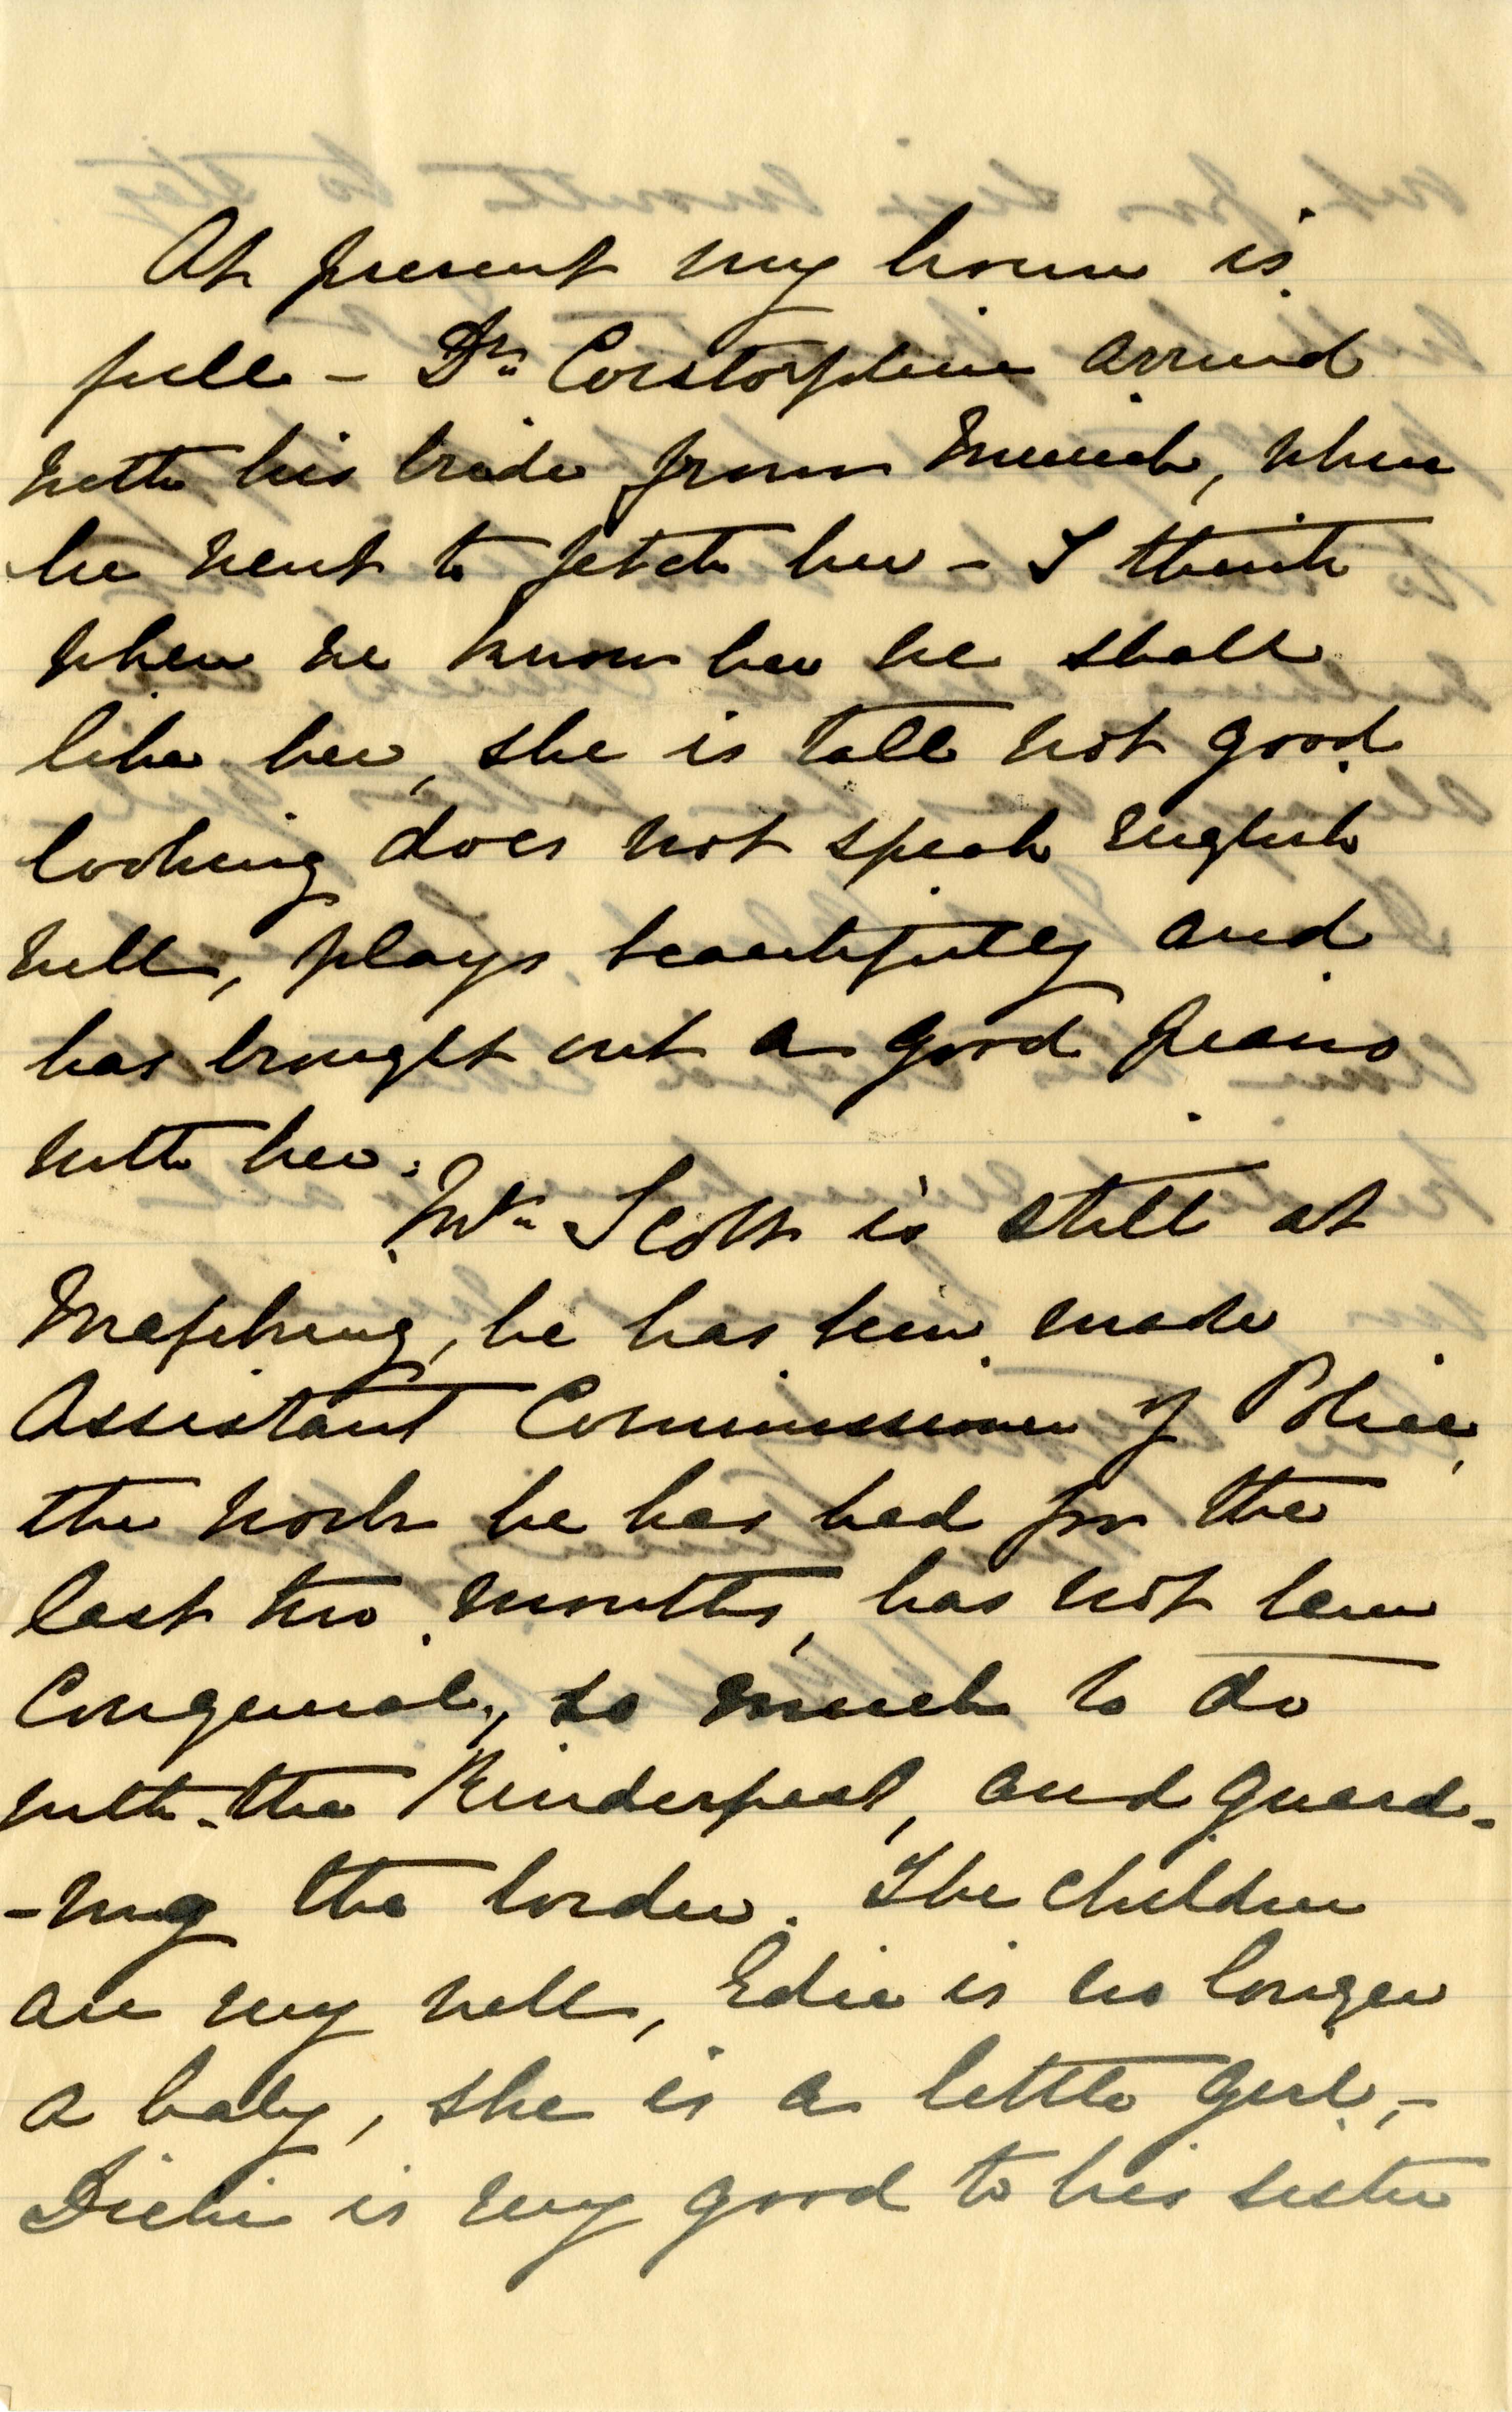 At present my house is
full – Dr. Corstorphine arrived
with his bride from Munich, where
he went to fetch her – I think
when we know her we shall
like her, she is tall not good
looking does not speak English
well, plays beautifully and
has brought out a good piano
with her.
Mr. Scott is still at
Mafeking, he has been made
Assistant Commissioner of Police,
the work he has had for the
last two months, has not been
Congenial, so much to do
with the Rinderpest, and guard-
-ing the border. The children
are very well, Edie is no longer
a baby, she is a little girl, –
Dickie is very good to his sister